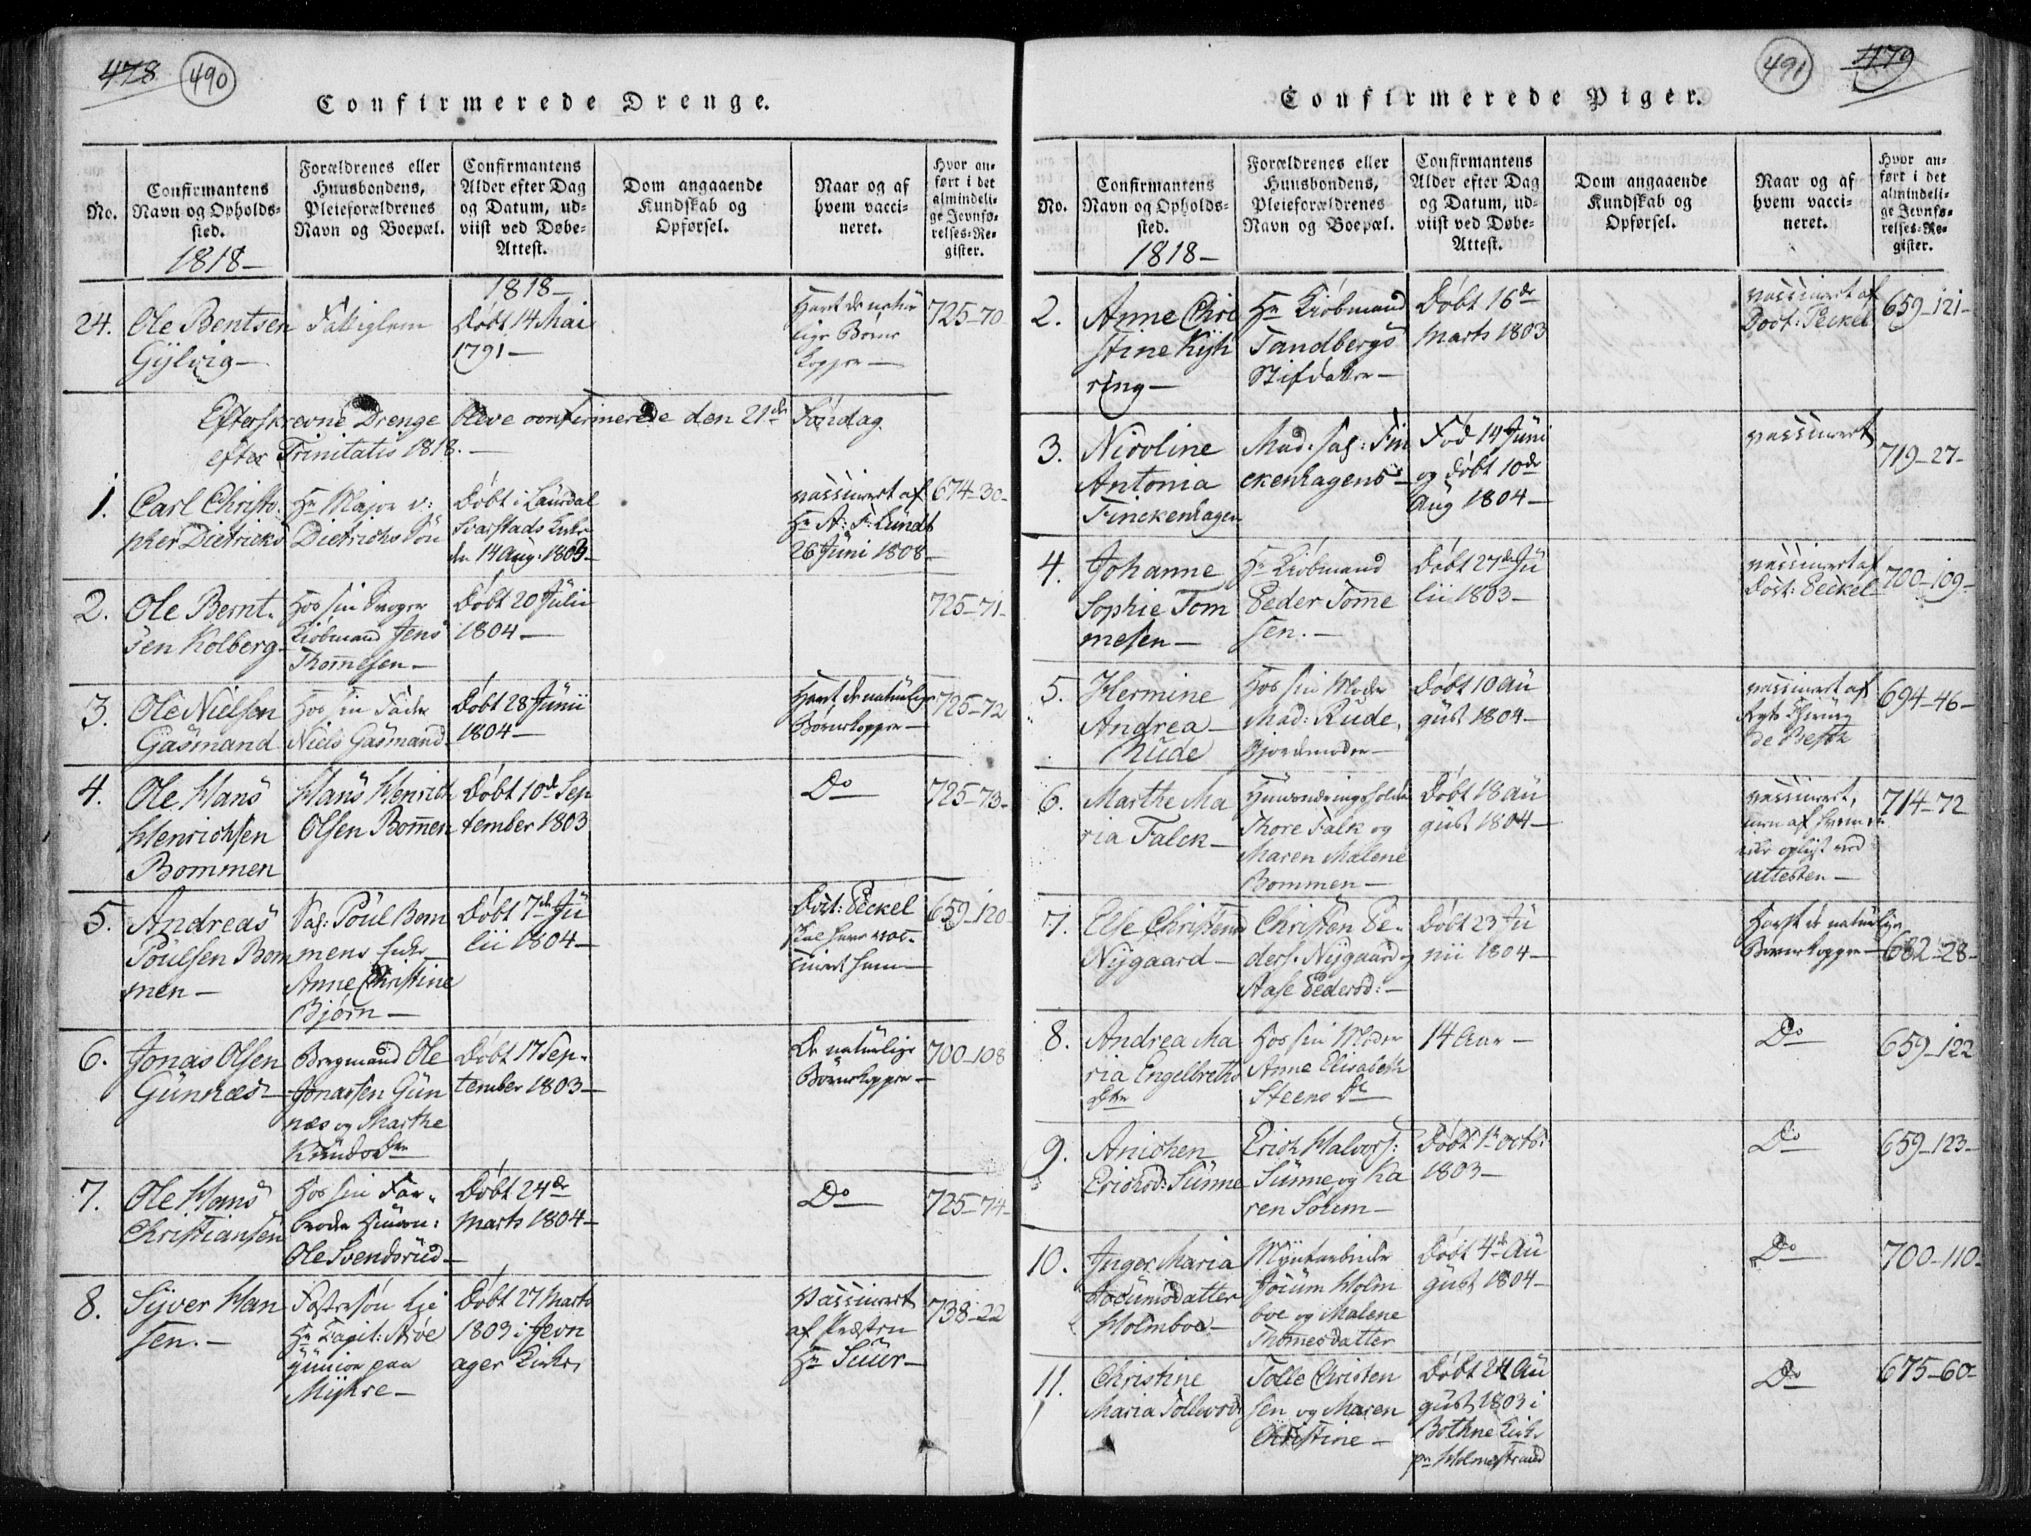 478 490
Confirmerede Drenge.
No.
Confirmantens
Navn og Opholds-
sted.
1818-
Forældrenes eller
Huusbondens,
Pleieforældrenes
Navn og Boepæl.
Confirmantens
Alder efter Dag
og Datum, ud-
viist ved Døbe-
Attest.
1818-
Dom angaaende
Kundskab og
Opførsel.
Naar og af
hvem vacci-
neret.
Hvor an-
ført i det
almindeli-
ge Jevnfø-
relses-Re-
gister.
24.
Ole Bentsen
Gÿlvig-
Fattiglem
Døbt 14 Mai
1791-
Havt de natür
lige Børne
kopper-
725-70
Efterskrevne Drenge bleve confirmerede den 21de Søndag
efter Trinitatis 1818.-
1.
Carl Christo-
pher Dietrichs
Hr Major v:
Dietrichs Søn
Døbt i Laurdal
Svarstads Kirke
den 14 Aug. 1803-
vassineret af
Hr A: F: Lundt
26 Jüni 1808-
674-30-
2.
Ole Bernt-
sen Kolberg-
Hos sin Svoger
Kiøbmand Jens
Thom̄esen-
Døbt 20 Jülii
1804-
725-71-
3.
Ole Nielsen
Gasmand
Hos sin Fader
Niels Gasmand
Døbt 28 Jünii
1804-
Havt de natürlige
Børnekopper-
725-72
4.
Ole Hans
Henrichsen
Bommen
Hans Henrich
Olsen Bom̄en
Døbt 10de Sep
tember 1803
Do
725-73-
5.
Andreas
Poülsen Bom
men-
Sal: Poül Bom
mens Enke
Anne Christine
Bjørn-
Døbt 7de Jü
lii 1804-
Doct: Peckel
skal have vas-
sineret ham-
659-120-
6.
Jonas Olsen
Günnæs-
Bergmand Ole
Jonassen Gün
næs og Marthe
Knudsdtr
Døbt 17 Sep-
tember 1803-
De natürlige
Børnekopper-
700-108
7.
Ole Hans
Christiansen
Hos sin Far-
broder
Ole Svendsrüd-
Døbt 24de
Marts 1804-
Do
725-74-
8.
Sÿver Han
sen.-
Fostersøn hje
Hr Capit: Arøe
jünior paa
Mÿhre-
Døbt 27 Marts
1803 i Jevn
ager Kirke
Vassineret
af Præsten
Hr Suur-
738-22
491 479
Confirmerede Piger.
No.
Confirmantens
Navn og Opholds-
sted.
1818-
Forældrenes eller
Huusbondens,
Pleieforældrenes
Navn og Boepæl.
Confirmantens
Alder efter Dag
og Datum, ud-
viist ved Døbe-
Attest.
Dom angaaende
Kundskab og
Opførsel.
Naar og af
hvem vacci-
neret.
Hvor an-
ført i det
almindeli-
ge Jevnfø-
relses-Re-
gister.
2.
Anne Chri
stine Kÿh
ring-
Hr Kiøbmand
Tandbergs
Stifdatter-
Døbt 16de
Marts 1803
vassineret af
Doct: Peckel
659-121-
3.
Nicoline
Antonia
Finckenhagen
Mad: Sal: Fin
ckenhagens-
Fød 14 Jüni
og døbt 10de
Aug 1804-
vassineret
719-27-
4.
Johanne
Sophie Tom
mesen-
Hr Kiøbmand
Peder Tom̄e
sen.-
Døbt 27de Jü
lii 1803-
vassineret af
Doct: Peckel
700-109-
5.
Hermine
Andrea
Rude
Hos sin Moder
Mad: Rude,
Gjordemoder-
Døbt 10 Aü
güst 1804-
vassineret af
694-46-
6.
Marthe Ma
ria Falck-
Thore Falk og
Maren Malene
Bommen-
Døbt 18 Aü
güst 1804-
vassineret,
men af hvem er
ikke oplyst ved
Attesten-
714-72
7.
Else Christens
Nÿgaard-
Christen Pe-
ders. Nÿgaard og
Aase Pedersd:-
Døbt 23 Jü
nii 1804-
Havt de natürlige
Børnekopper-
682-28-
8.
Andrea Ma
ria Engelbreths
dtr
Hos sin Moder
Anne Elisabeth
Steens Dtr
14 Aar-
Do
659-122
9.
Anichen
Erichsd: Sünne
Erich Halvors:
Sünne og Ka
ren Solum-
Døbt 1te Octb:
1803-
Do
659-123-
10.
Inger Maria
Jocümsdatter
Holmboe-
Mÿntarbeider
Jocum Holm
boe og Malene
Thomesdatter
Døbt 4de Aü
güst 1804-
Do
700-110-
11.
Christine
Maria Tollevsd:
Tolle Christen
sen og Maren
Christine-
Døbt 24 Aü
güst 1803 i
Bothne Kirke
pr Holmestrand
Do
675-60-